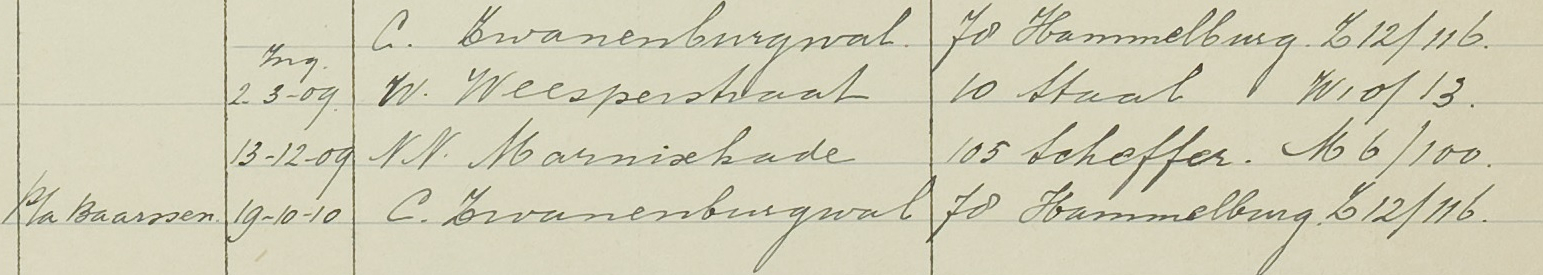 C. Zwanenburgwal. 78 Hammelburg. Z 12/116.
Ing.
2-3-09. W. Weesperstraat 10 Staal W10/13.
13-12-09 NN. Marnixkade 105 Scheffer. M6/100.
p/a Baarssen. 19-10-10 C. Zwanenburgwal 78 Hammelburg. Z 12/116.